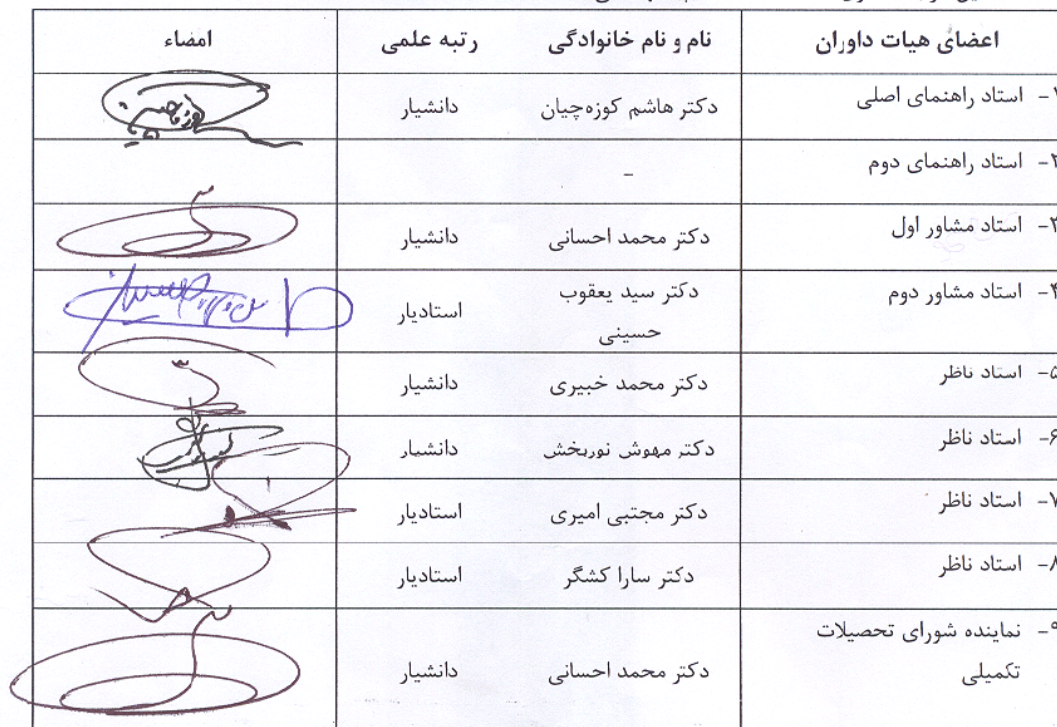 اعضای هیات داوران نام و نام خانوادگی رتبه علمی امضاء
۱- استاد راهنمای اصلی دکتر هاشم کوزه‌چیان دانشیار
۲- استاد راهنمای دوم -
۳- استاد مشاور اول دکتر محمد احسانی دانشیار
۴- استاد مشاور دوم دکتر سید یعقوب
حسینی استادیار
۵- استاد ناظر دکتر محمد خبیری دانشیار
۶- استاد ناظر دکتر مهوش نوربخش دانشیار
۷- استاد ناظر دکتر مجتبی امیری استادیار
۸- استاد ناظر دکتر سارا کشگر استادیار
۹- نماینده شورای تحصیلات
تکمیلی دکتر محمد احسانی دانشیار